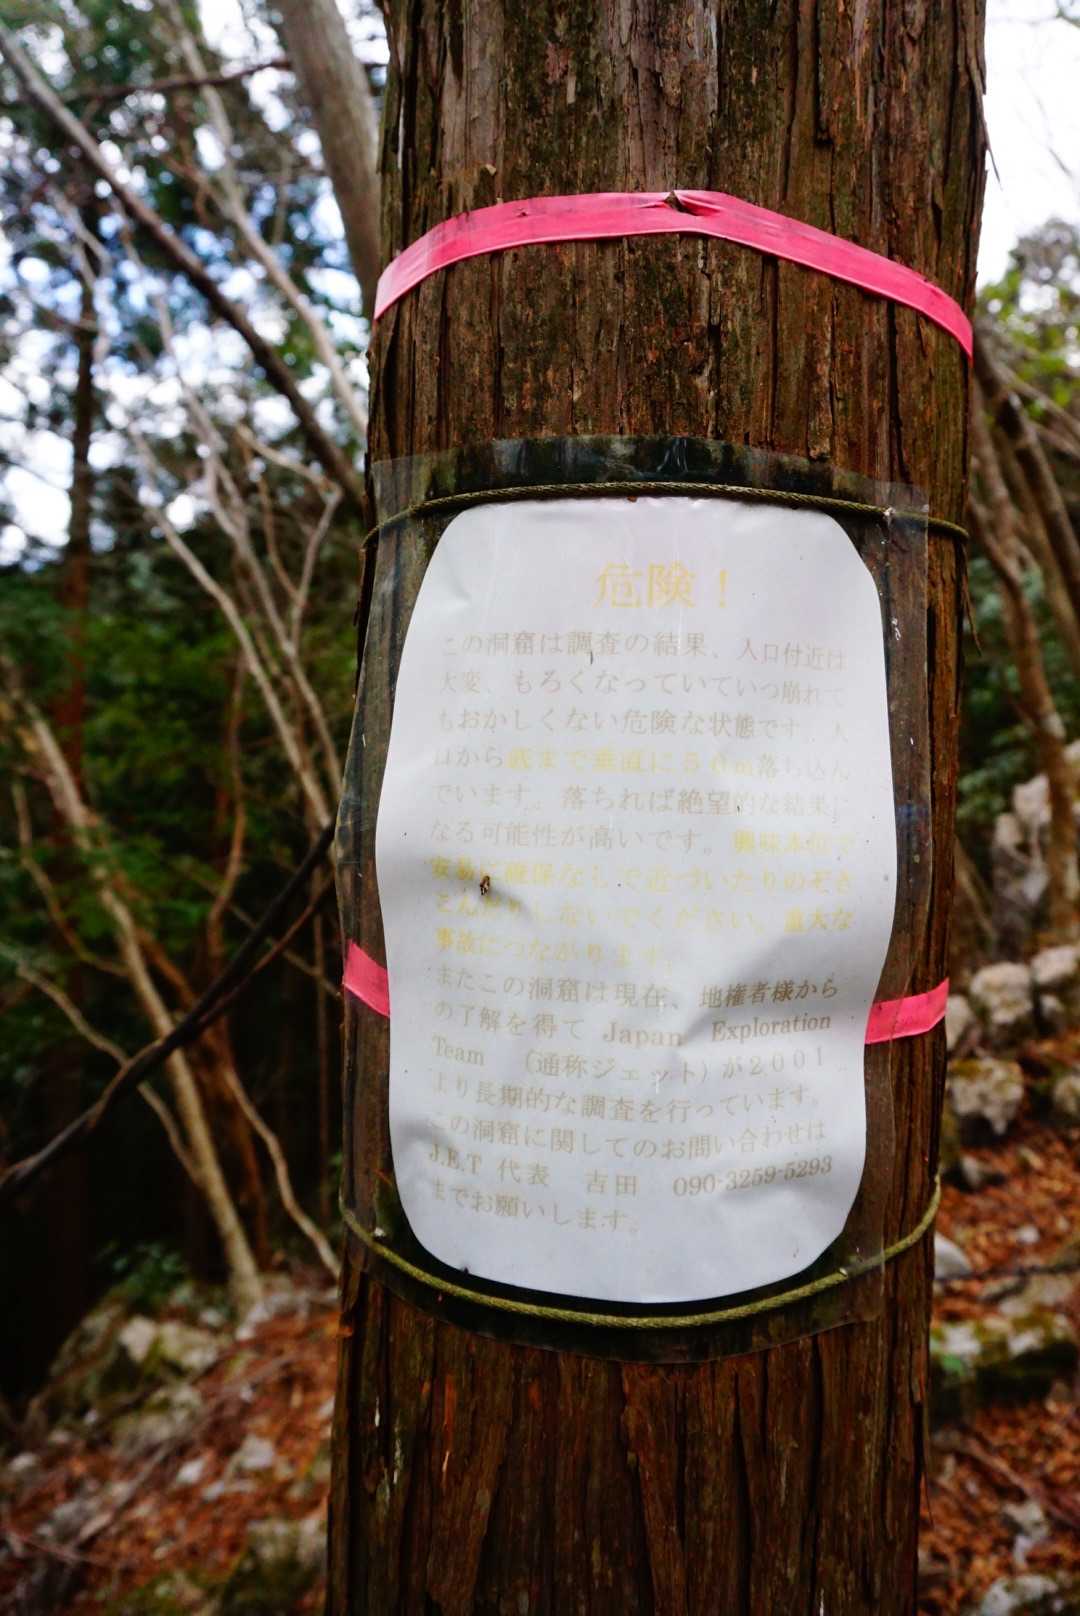 危険！
この洞窟は調査の結果、入口付近は
大変、もろくなっていていつ崩れて
もおかしくない危険な状態です。入
口から底まで垂直に５０ｍ落ち込ん
でいます。落ちれば絶望的な結果に
なる可能性が高いです。興味本位で
安易に確保なしで近づいたりのぞき
こんだりしないでください。重大な
事故につながります。
またこの洞窟は現在、地権者様から
の了解を得て Japan Exploration
Team （通称ジェット）が２００１
より長期的な調査を行っています。
この洞窟に関してのお問い合わせは
J.E.T 代表 吉田 090-3259-5293
までお願いします。